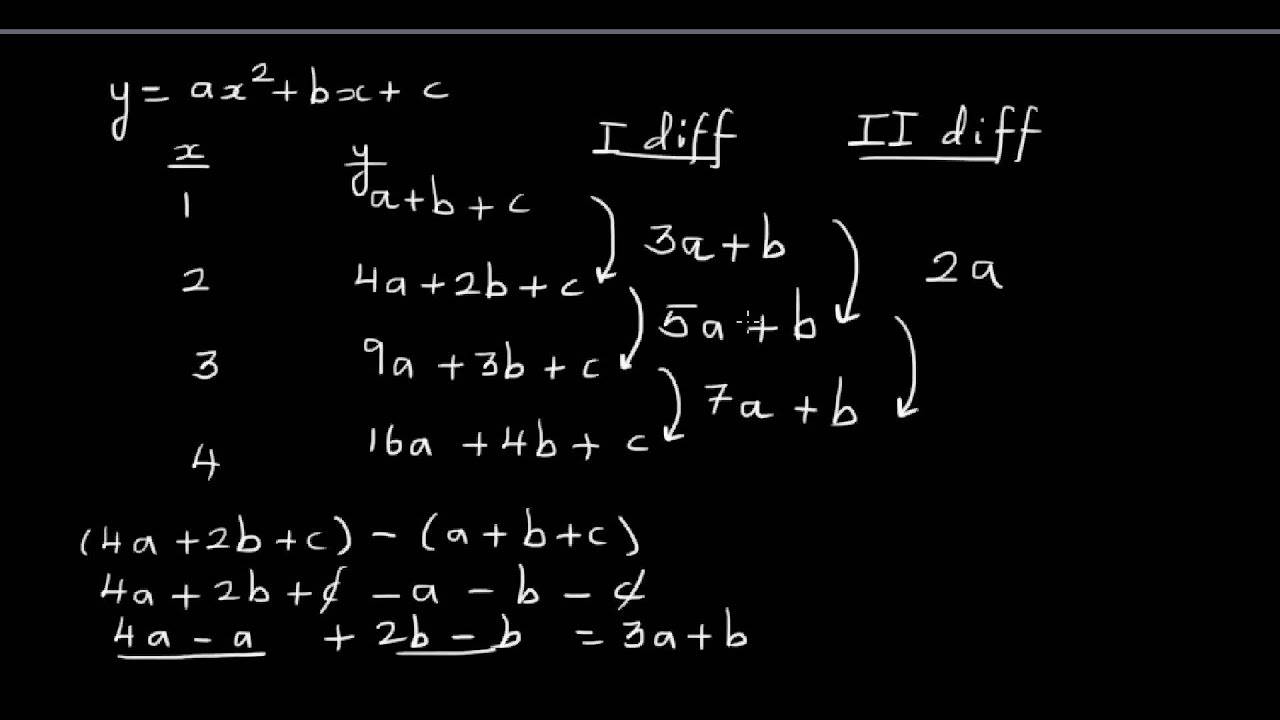 y = ax² + bx + c
I diff II diff
x y
1 a + b + c
3a + b
2 4a + 2b + c
2a
5a + b
3 9a + 3b + c
7a + b
4 16a + 4b + c
(4a + 2b + c) - (a + b + c)
4a + 2b + c - a - b - c
4a - a + 2b - b = 3a + b